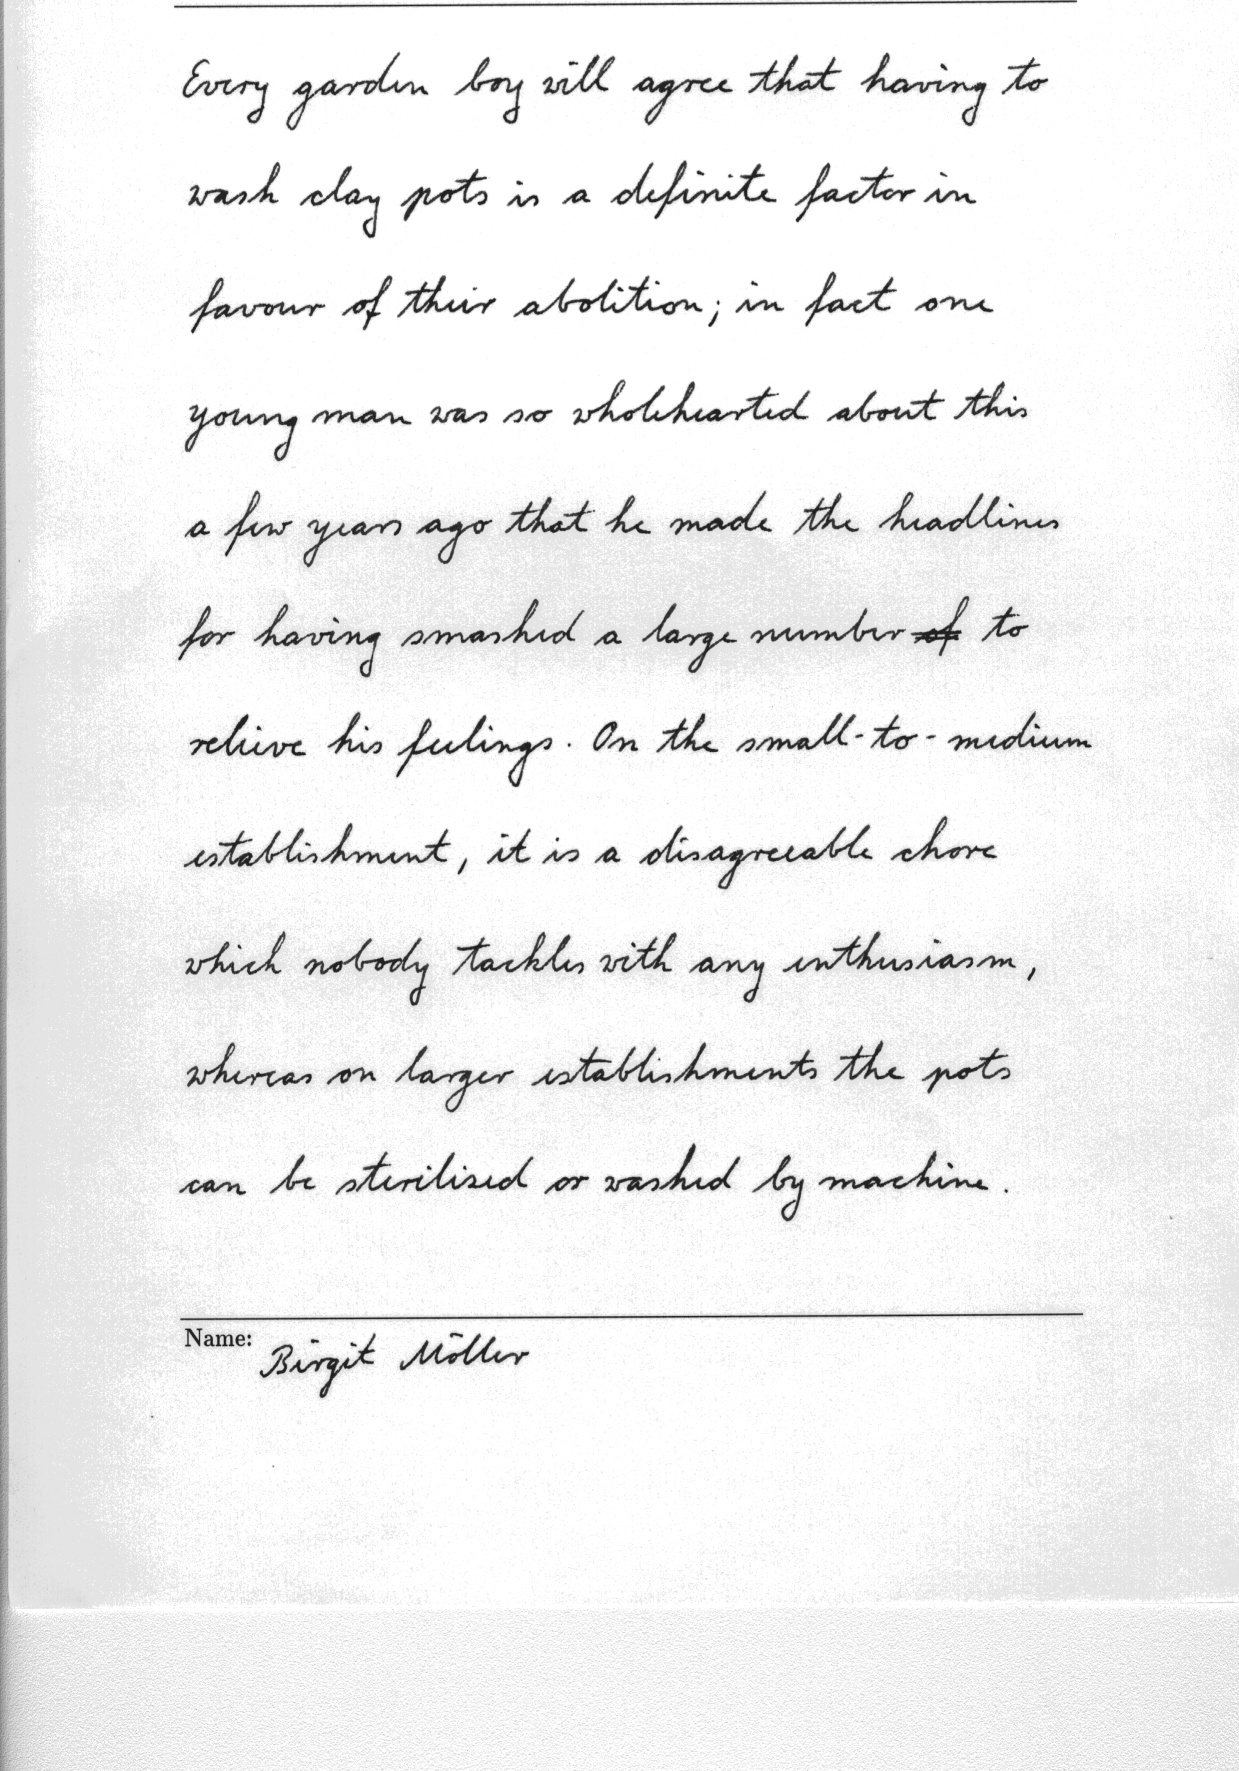 Every garden boy will agree that having to
wash clay pots is a definite factor in
favour of their abolition; in fact one
young man was so wholehearted about this
a few years ago that he made the headlines
for having smashed a large number of to
relieve his feelings. On the small-to-medium
establishment, it is a disagreeable chore
which nobody tackles with any enthusiasm,
whereas on larger establishments the pots
can be sterilised or washed by machine.
Name: Birgit Möller